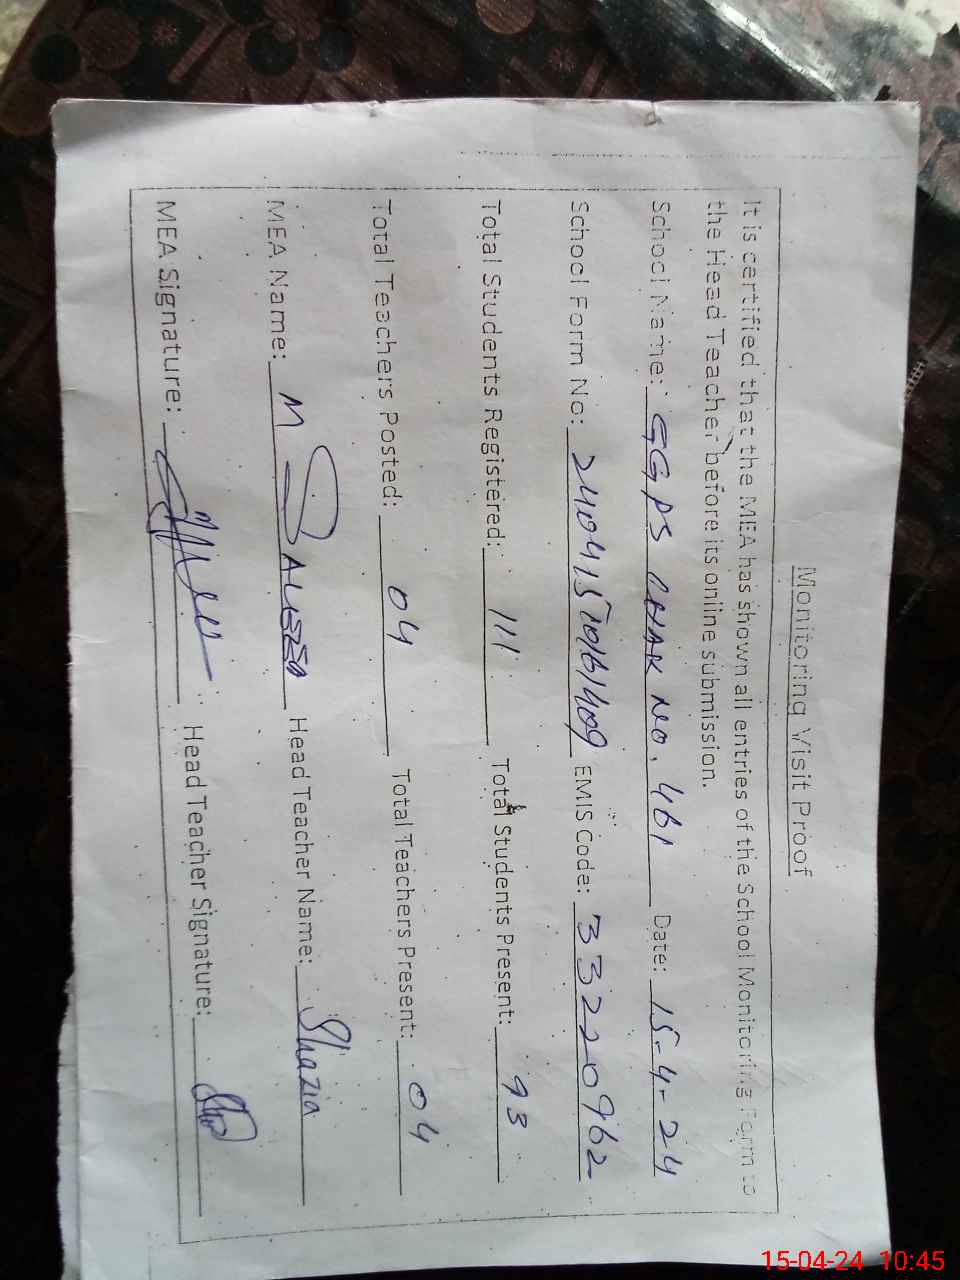 Monitoring Visit Proof
It is certified that the MEA has shown all entries of the School Monitoring Form to
the Head Teacher before its online submission.
School Name: GGPS CHAK NO. 461 Date: 15-4-24
School Form No: EMIS Code: 33220962
Total Students Registered: 111 Total Students Present: 93
Total Teachers Posted: 04 Total Teachers Present: 04
MEA Name: M Head Teacher Name: Shazia
MEA Signature: Head Teacher Signature:
15-04-24 10:45